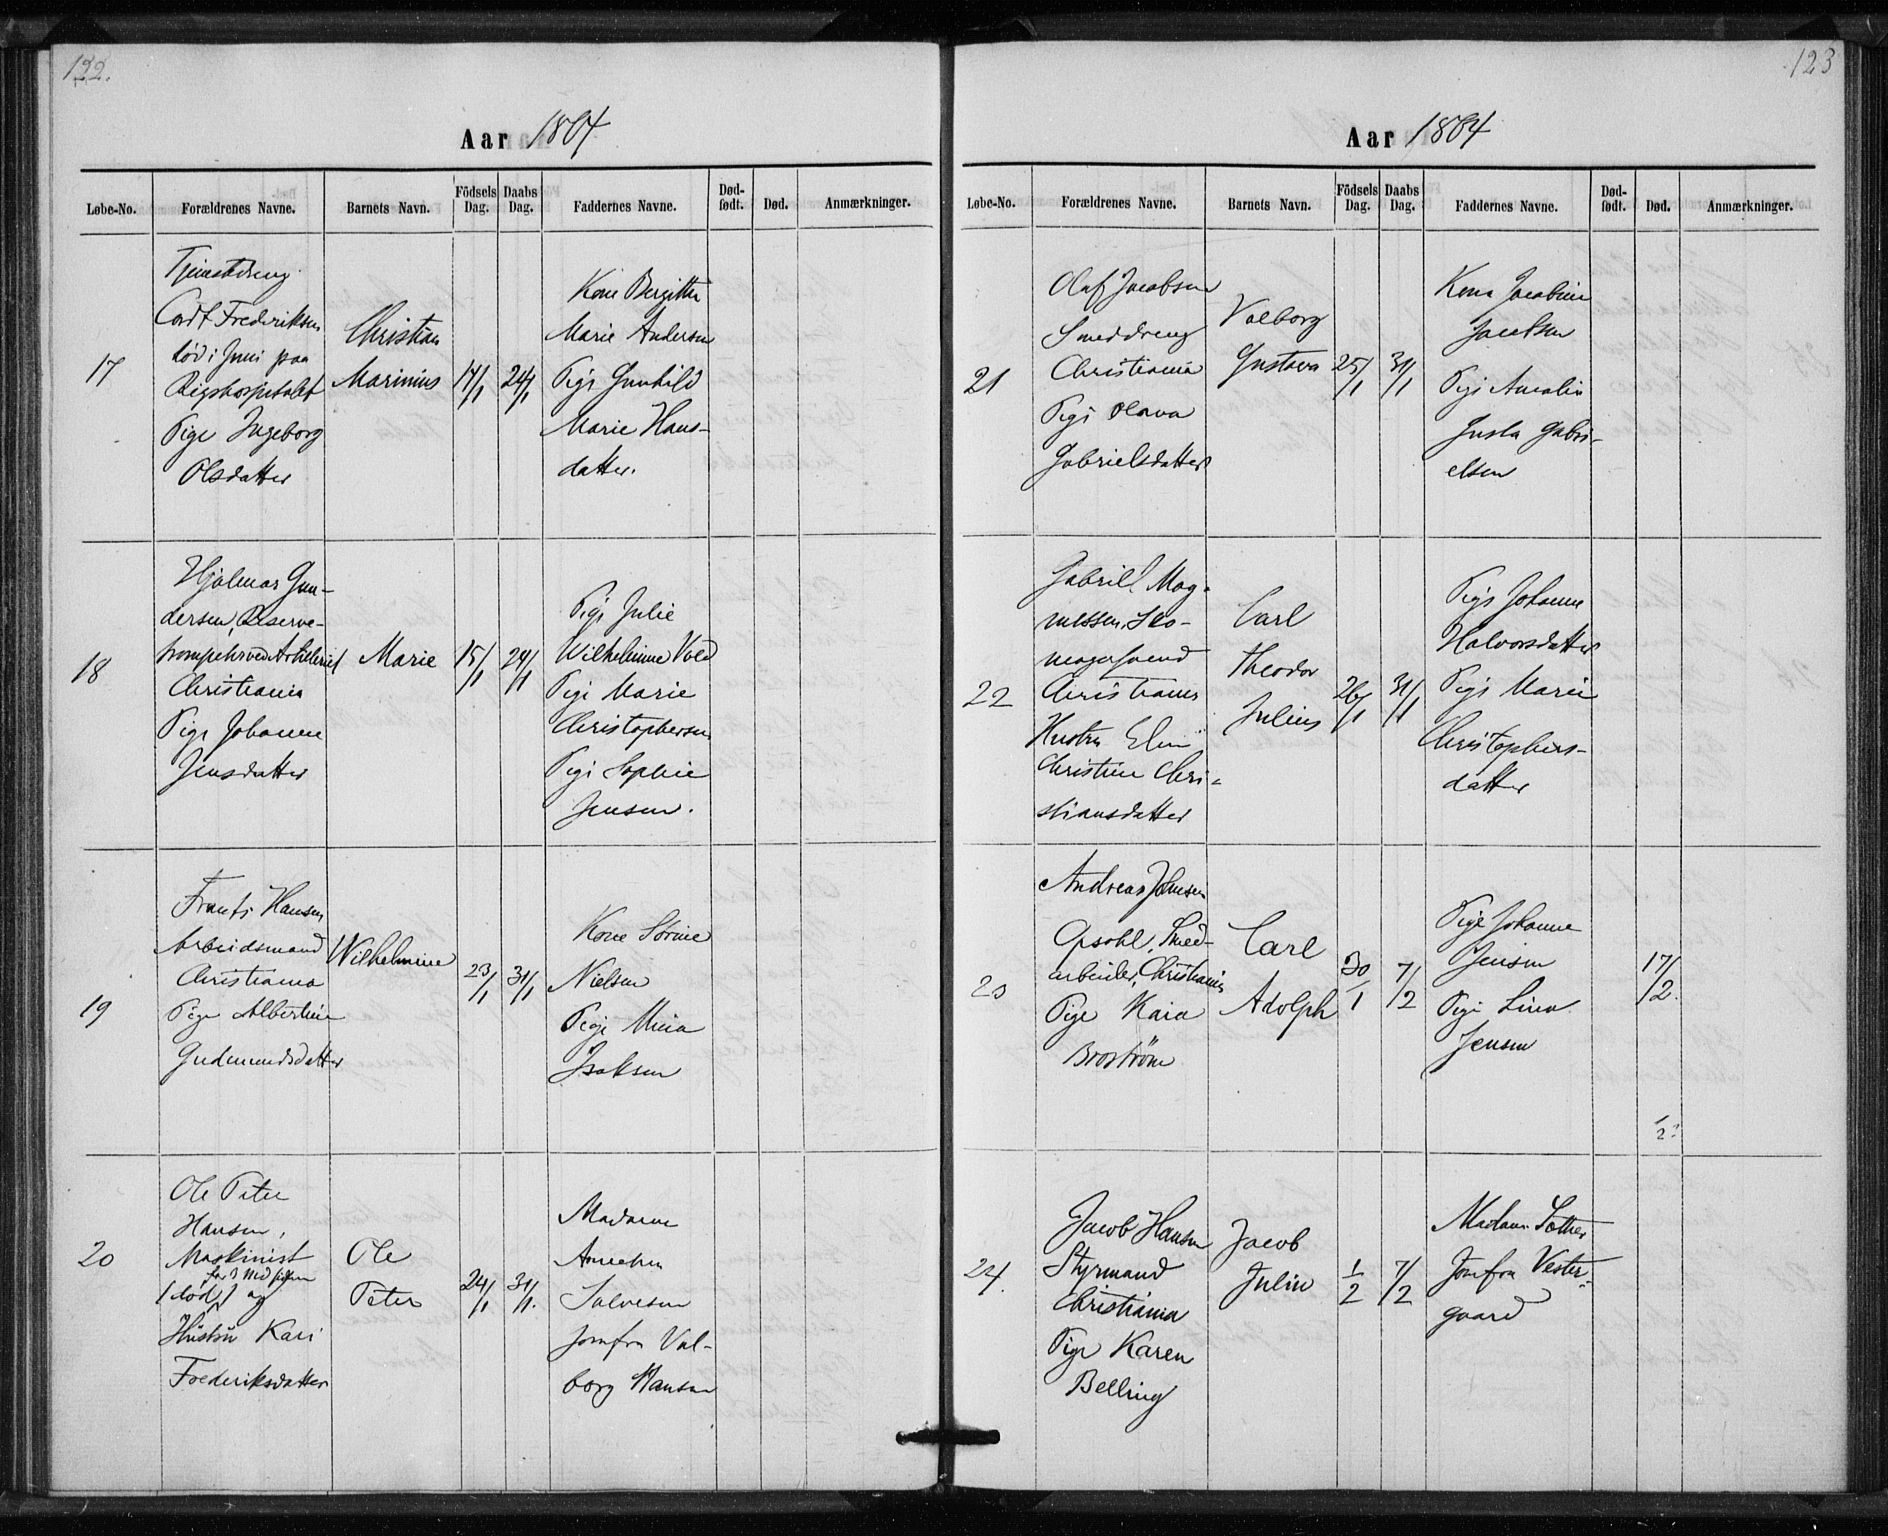 122.
Aar 1864
Løbe-No. Forældrenes Navne. Barnets Navn. Födsels Dag. Daabs Dag. Faddernes Navne. Død-født. Død. Anmærkninger.
17
Tjenestdreng
Frederiksen
død i Juni paa
Rigshospitalet
Pige Ingeborg
Olsdatter
Christian
Marinius
14/1
24/1
Kone Bergitte
Marie Andersen
Pige Gunhild
Marie Hans-
datter.
18
Hjalmar Gun-
dersen, Reserve-
trompeter ved Artilleriet
Christiania
Pige Johanne
Jensdatter
Marie
15/1
24/1
Pige Julie
Wilhelmine Vold
Pige Marie
Christophersen
Pige Sophie
Jensen.
19
Frants Hansen
Arbeidsmand
Christiania
Pige Albertine
Gudmundsdatter
Wilhelmine
23/1
31/1
Kone Sørine
Nielsen
Pige Mina
Isaksen
20
Ole Peter
Hansen,
Maskinist
/død/ og
Hustru Kari
Frederiksdatter
Ole
Peter
24/1
31/1.
Madame
Annechen
Salvesen
Jomfru Val-
borg Hansen
123
Aar 1864
Løbe-No. Forældrenes Navne. Barnets Navn. Födsels Dag. Daabs Dag. Faddernes Navne. Død-født. Død. Anmærkninger.
21
Olaf Jacobsen
Smeddreng
Christiania
Pige Olava
Gabrielsdatter
Valborg
Gustava
25/1
31/1
Kone Jacobine
Jacobsen
Pige Amalie
Gusta Gabri-
elsen
22
Gabriel Mag-
nussen, Sko-
magersvend
Christiania
Hustru Elen
Christine Chri-
stiansdatter
Carl
Theodor
Julius
26/1
31/1
Pige Johanne
Halvorsdatter
Pige Marie
Christophers-
datter
23
Andreas Johnsen
Opsahl, Smed-
arbeider, Christiania
Pige Kaia
Broström
Carl
Adolph
30/1
7/2
Pige Johanne
Jensen
Pige Lina
Jensen
17/2.
24.
Jacob Hansen
Styrmand
Christiania
Pige Karen
Belling
Jacob
Julin
1/2
7/2
Madam Sother
Jomfru Vester-
gaard